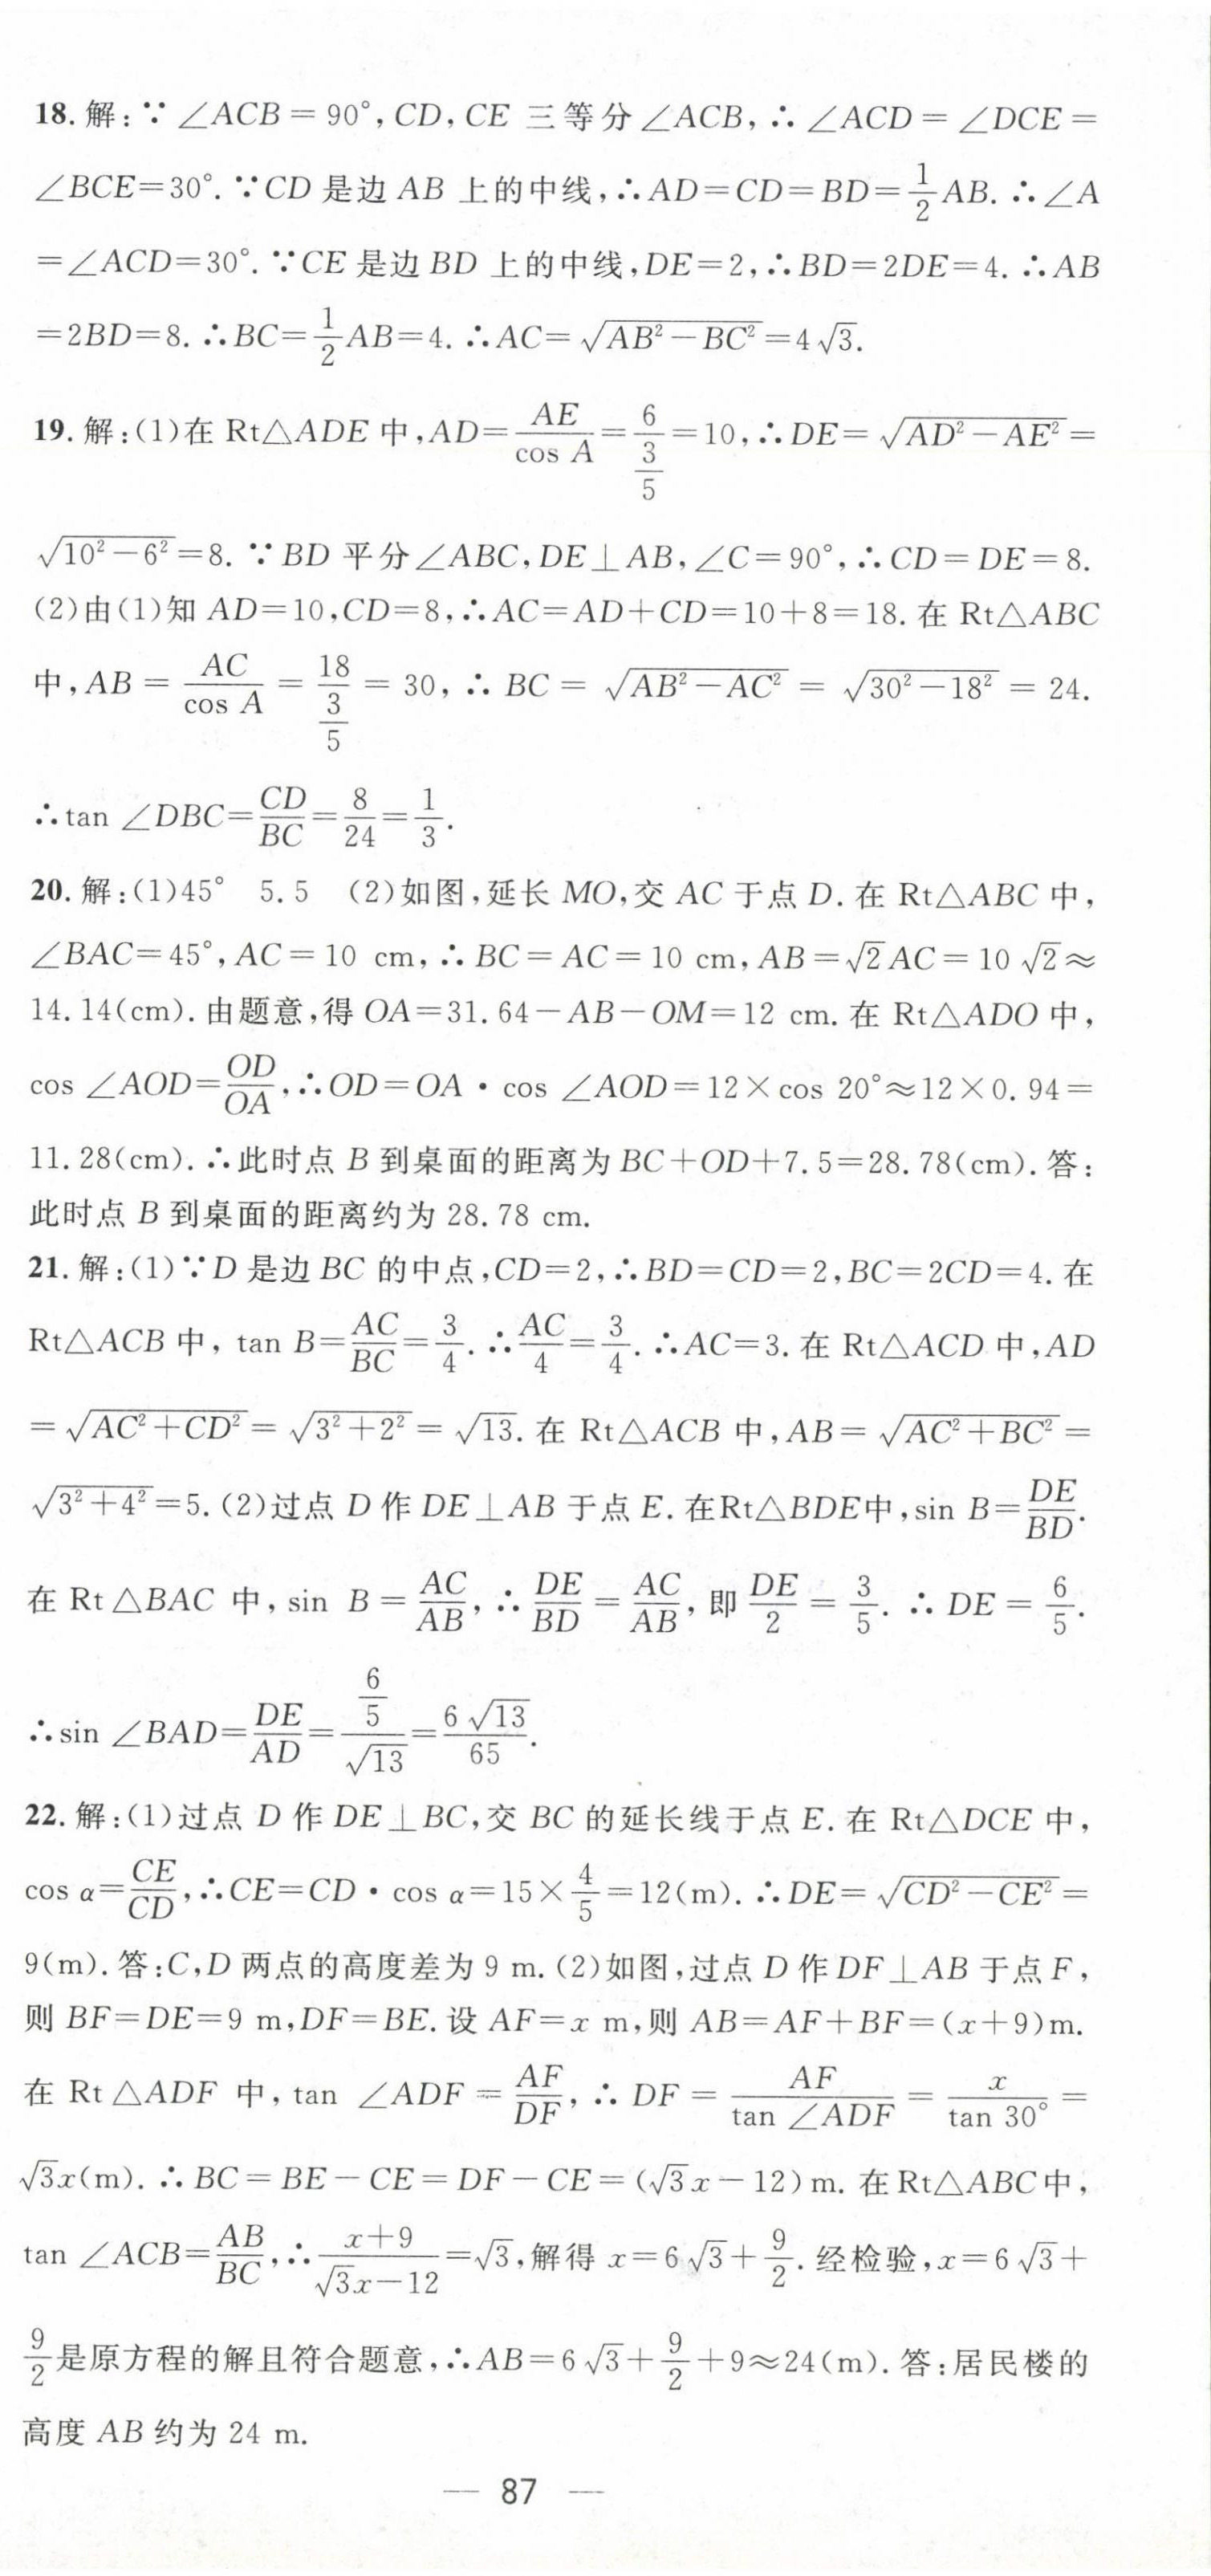 18. 解:∵∠ACB=90°,CD,CE 三等分∠ACB,∴∠ACD=∠DCE=
∠BCE=30°.∵CD 是边 AB 上的中线,∴AD=CD=BD=\frac{1}{2}AB.∴∠A
=∠ACD=30°.∵CE 是边 BD 上的中线,DE=2,∴BD=2DE=4.∴AB
=2BD=8.∴BC=\frac{1}{2}AB=4.∴AC=\sqrt{AB²-BC²}=4\sqrt{3}.
19. 解:(1)在 Rt△ADE 中,AD=\frac{AE}{cos A}=\frac{6}{\frac{3}{5}}=10,∴DE=\sqrt{AD²-AE²}=
\sqrt{10²-6²}=8.∵BD 平分∠ABC,DE⊥AB,∠C=90°,∴CD=DE=8.
(2)由(1)知 AD=10,CD=8,∴AC=AD+CD=10+8=18.在 Rt△ABC
中,AB=\frac{AC}{cos A}=\frac{18}{\frac{3}{5}}=30,∴BC=\sqrt{AB²-AC²}=\sqrt{30²-18²}=24.
∴tan ∠DBC=\frac{CD}{BC}=\frac{8}{24}=\frac{1}{3}.
20. 解:(1)45° 5.5 (2)如图,延长 MO,交 AC 于点 D.在 Rt△ABC 中,
∠BAC=45°,AC=10 cm,∴BC=AC=10 cm,AB=\sqrt{2}AC=10\sqrt{2}≈
14.14(cm).由题意,得 OA=31.64-AB-OM=12 cm.在 Rt△ADO 中,
cos ∠AOD=\frac{OD}{OA},∴OD=OA·cos ∠AOD=12×cos 20°≈12×0.94=
11.28(cm).∴此时点 B 到桌面的距离为 BC+OD+7.5=28.78(cm).答:
此时点 B 到桌面的距离约为 28.78 cm.
21. 解:(1)∵D 是边 BC 的中点,CD=2,∴BD=CD=2,BC=2CD=4.在
Rt△ACB 中,tan B=\frac{AC}{BC}=\frac{3}{4}.∴\frac{AC}{4}=\frac{3}{4}.∴AC=3.在 Rt△ACD 中,AD
=\sqrt{AC²+CD²}=\sqrt{3²+2²}=\sqrt{13}.在 Rt△ACB 中,AB=\sqrt{AC²+BC²}=
\sqrt{3²+4²}=5.(2)过点 D 作 DE⊥AB 于点 E.在Rt△BDE中,sin B=\frac{DE}{BD}.
在 Rt△BAC 中,sin B=\frac{AC}{AB},∴\frac{DE}{BD}=\frac{AC}{AB},即\frac{DE}{2}=\frac{3}{5}.∴DE=\frac{6}{5}.
∴sin ∠BAD=\frac{DE}{AD}=\frac{\frac{6}{5}}{\sqrt{13}}=\frac{6\sqrt{13}}{65}.
22. 解:(1)过点 D 作 DE⊥BC,交 BC 的延长线于点 E.在 Rt△DCE 中,
cos α=\frac{CE}{CD},∴CE=CD·cos α=15×\frac{4}{5}=12(m).∴DE=\sqrt{CD²-CE²}=
9(m).答:C,D 两点的高度差为 9 m.(2)如图,过点 D 作 DF⊥AB 于点 F,
则 BF=DE=9 m,DF=BE.设 AF=x m,则 AB=AF+BF=(x+9)m.
在 Rt△ADF 中,tan ∠ADF=\frac{AF}{DF},∴DF=\frac{AF}{tan ∠ADF}=\frac{x}{tan 30°}=
\sqrt{3}x(m).∴BC=BE-CE=DF-CE=(\sqrt{3}x-12)m.在Rt△ABC中,
tan ∠ACB=\frac{AB}{BC},∴\frac{x+9}{\sqrt{3}x-12}=\sqrt{3},解得 x=6\sqrt{3}+\frac{9}{2}.经检验,x=6\sqrt{3}+
\frac{9}{2}是原方程的解且符合题意,∴AB=6\sqrt{3}+\frac{9}{2}+9≈24(m).答:居民楼的
高度 AB 约为 24 m.
— 87 —